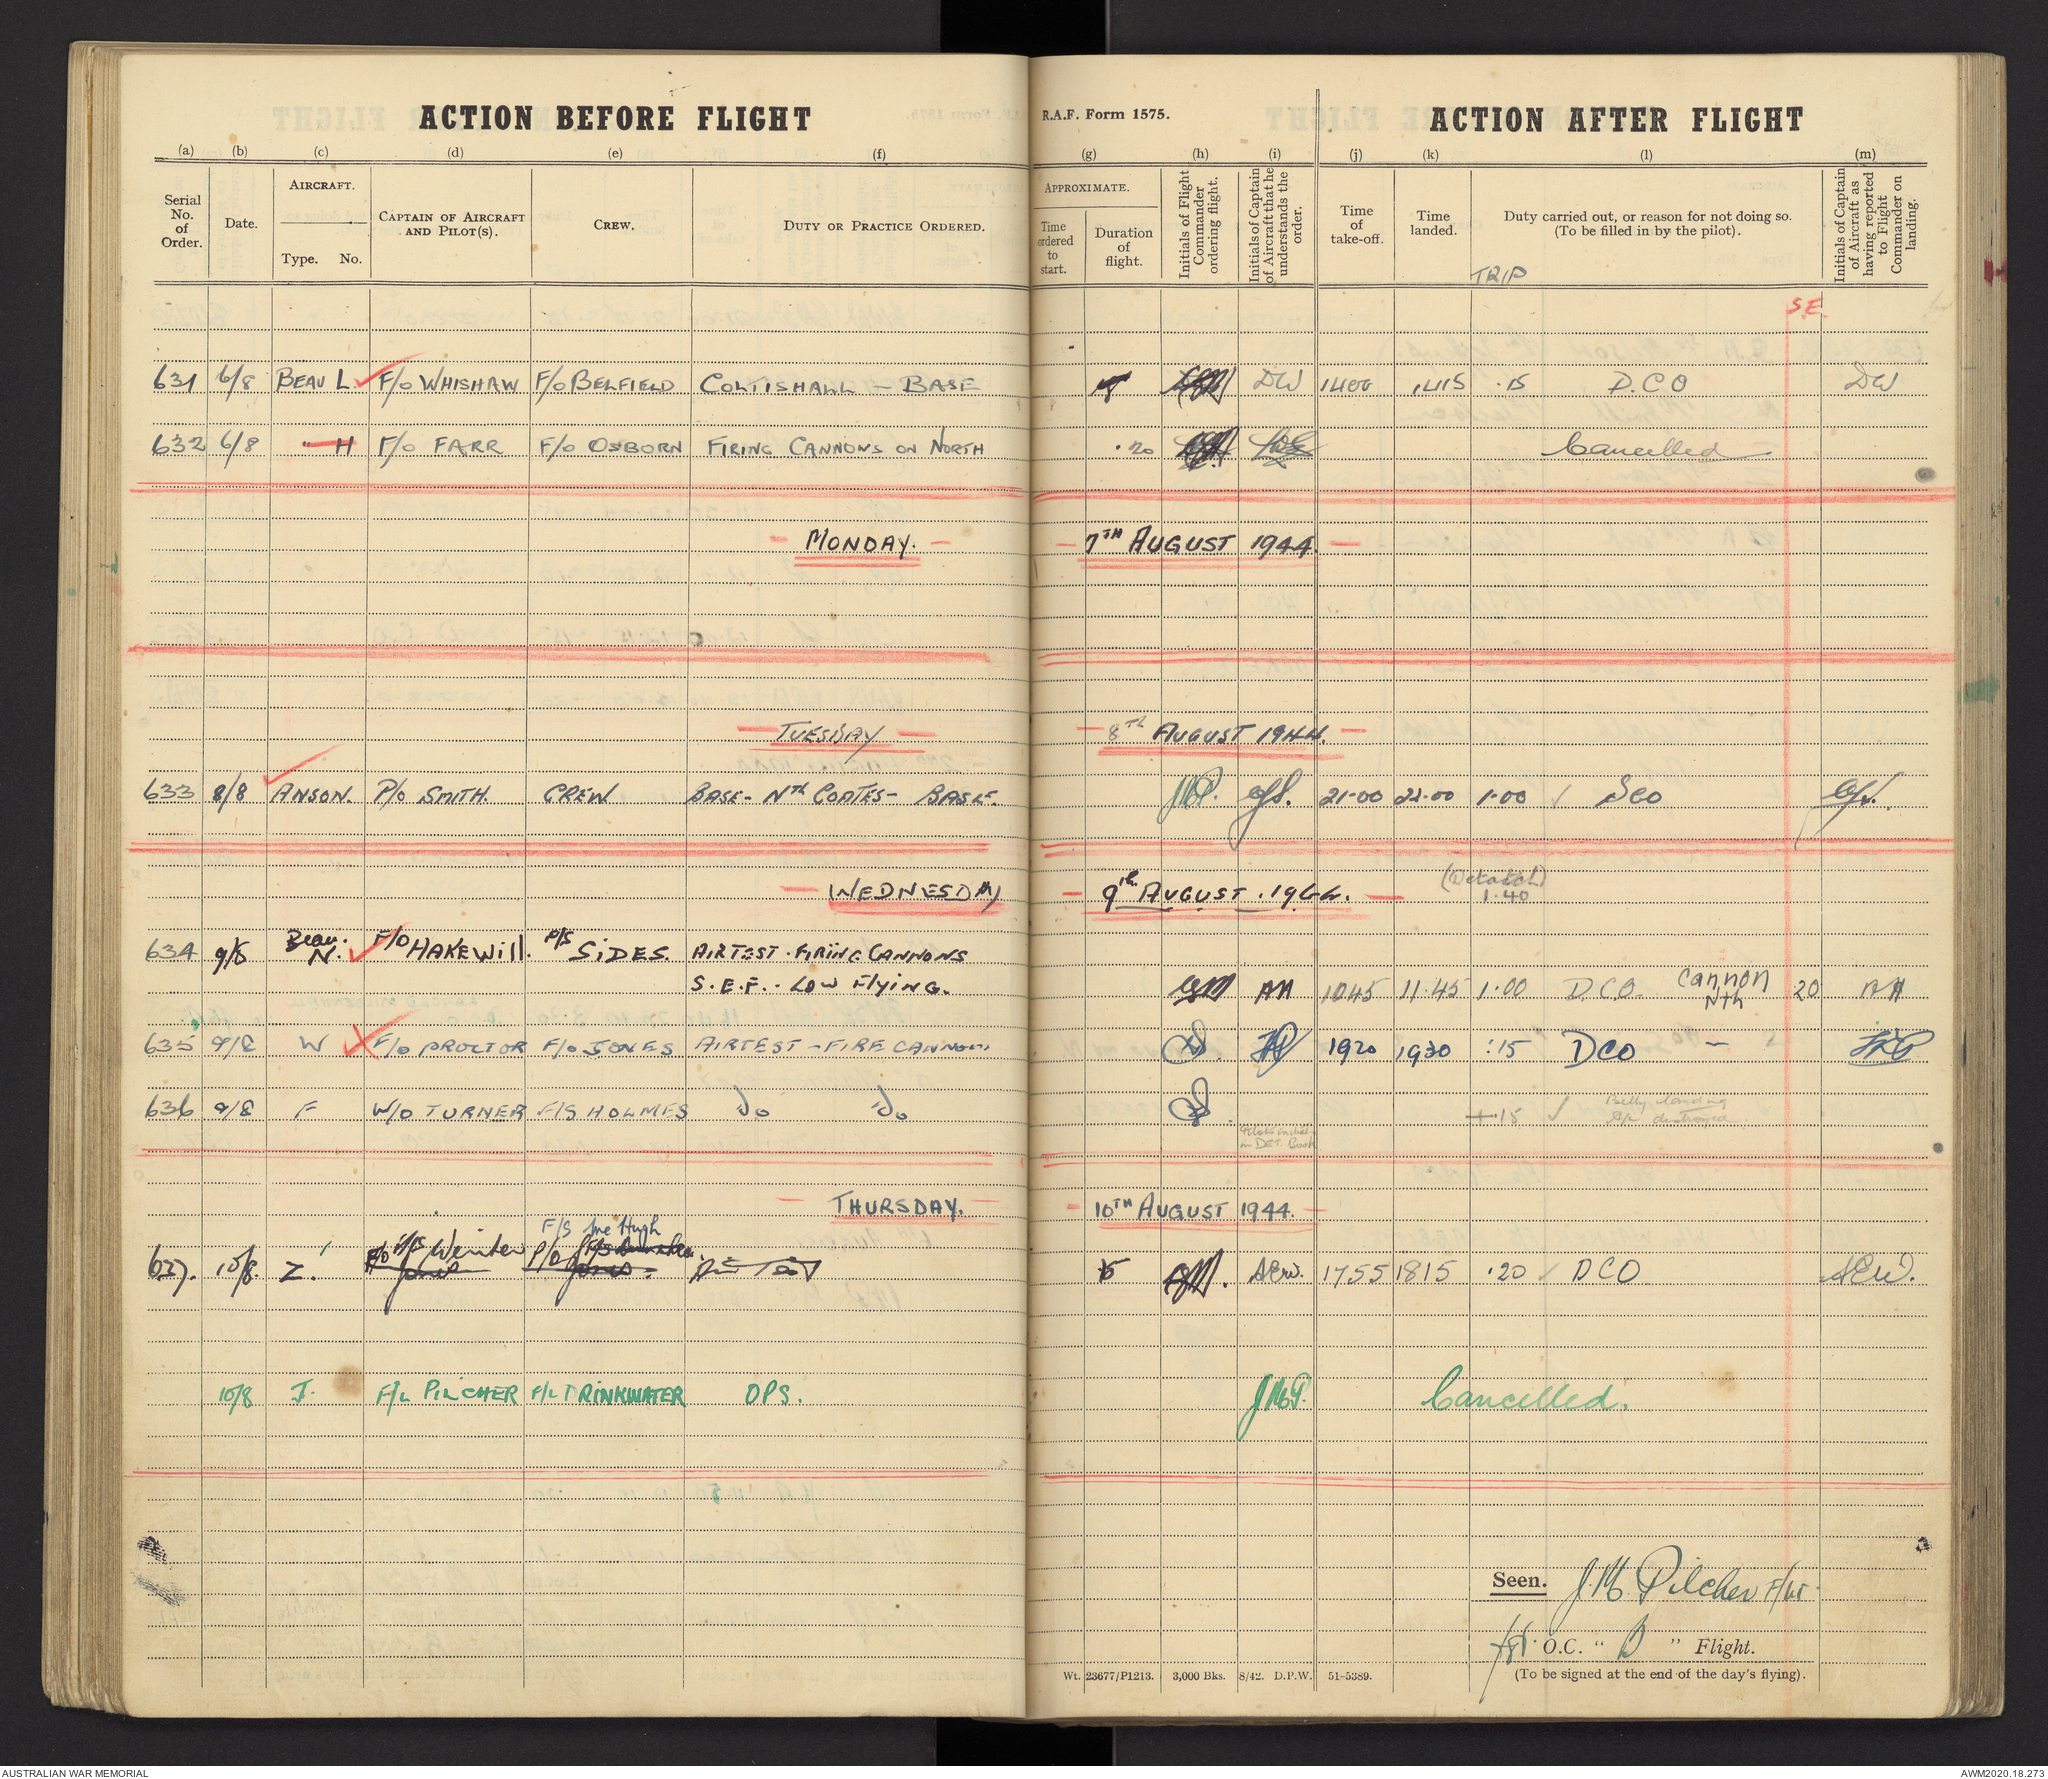 ACTION BEFORE FLIGHT
R.A.F. Form 1575.
ACTION AFTER FLIGHT
(a) (b) (c) (d) (e) (f) (g) (h) (i) (j) (k) (l) (m)
Serial No. of Order.
Date.
AIRCRAFT.
Type. No.
CAPTAIN OF AIRCRAFT AND PILOT(S).
CREW.
DUTY OR PRACTICE ORDERED.
APPROXIMATE.
Time ordered to start.
Duration of flight.
Initials of Flight Commander ordering flight.
Initials of Captain of Aircraft that he understands the order.
Time of take-off.
Time landed.
Duty carried out, or reason for not doing so.
(To be filled in by the pilot).
Initials of Captain of Aircraft as having reported to Flight Commander on landing.
TRIP
S.E.
631 6/8 BEAU L. F/O WHISHAW F/O BELFIELD COLTISHALL - BASE DW 1400 1415 .15 D.C.O DW
632 6/8 " H F/O FARR F/O OSBORN FIRING CANNONS ON NORTH .20 Cancelled
- MONDAY. - - 7TH AUGUST 1944. -
- TUESDAY - - 8TH AUGUST 1944. -
633 8/8 ANSON. P/O SMITH. CREW BASE - NTH COATES - BASE. 21.00 22.00 1.00 ✓ DCO
- WEDNESDAY - 9th AUGUST . 1944. -
1.40
634 9/8 Beau. N. F/O HAKEWill. F/S SiDES. AIRTEST . FiRiNG CANNONS
S.E.F. . LOW FlyiNG. AH 1045 11.45 1.00 D.C.O. Cannon Nth 20 AH
635 9/8 W F/O PROCTOR F/O JONES AIRTEST - FIRE CANNON. 1920 1930 :15 DCO -
636 9/8 F W/O TURNER F/S HOLMES Do Do + .15 ✓ Belly landing
A/c destroyed
Pilots initials
in DET. Book
- THURSDAY. - - 10TH AUGUST 1944. -
F/S Mc Hugh
637. 10/8. Z. Winter P/O Jones. Air Test AEW. 1755 1815 .20 ✓ DCO AEW.
10/8 J. F/L PILCHER F/L DRINKWATER OPS. JMP. Cancelled.
Seen. J.M. Pilcher F/Lt.
for O.C. " B " Flight.
(To be signed at the end of the day's flying).
Wt. 23677/P1213. 3,000 Bks. 8/42. D.P.W. 51-5389.
AUSTRALIAN WAR MEMORIAL
AWM2020.18.273